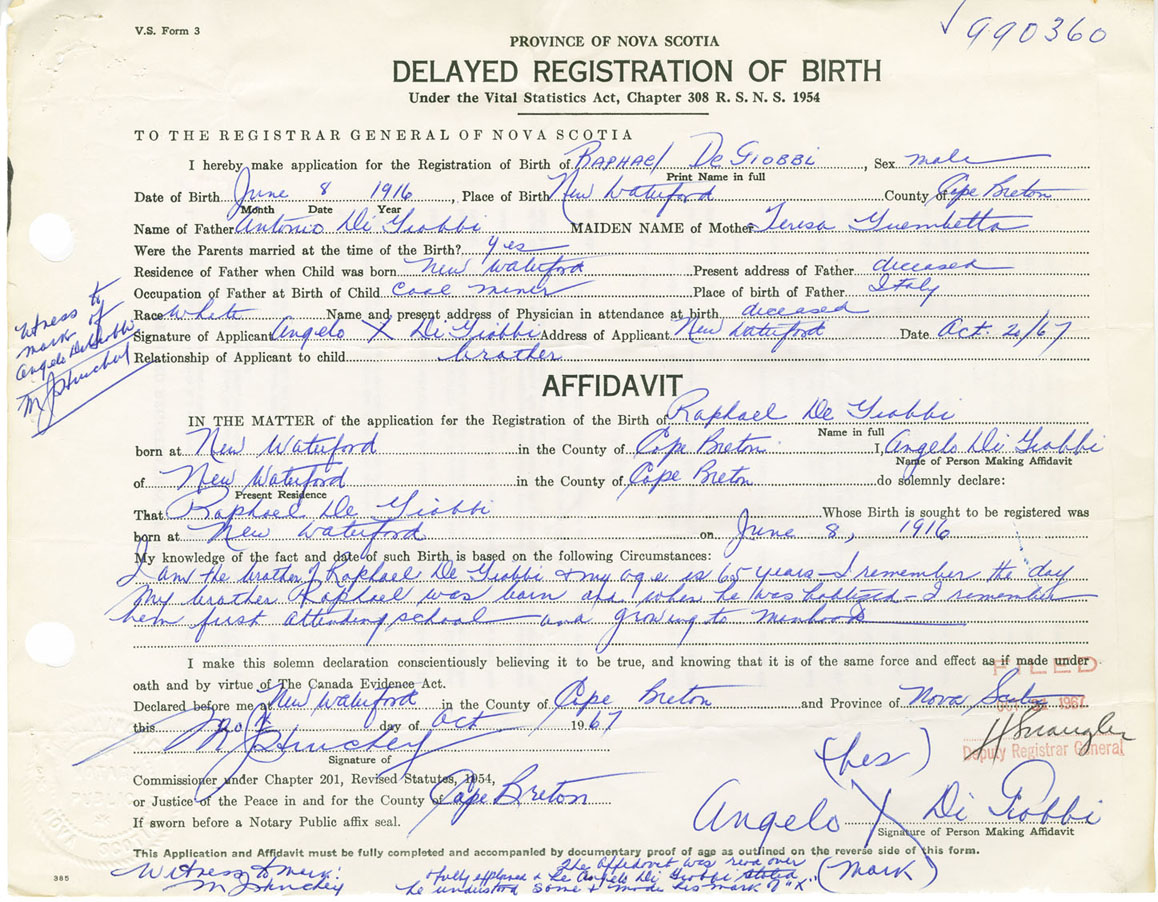 V.S. Form 3
990360
PROVINCE OF NOVA SCOTIA
DELAYED REGISTRATION OF BIRTH
Under the Vital Statistics Act, Chapter 308 R. S. N. S. 1954
TO THE REGISTRAR GENERAL OF NOVA SCOTIA
I hereby make application for the Registration of Birth of RAPHAEL DE GIOBBI, Sex male
Print Name in full
Date of Birth June 8 1916, Place of Birth New Waterford County of Cape Breton
Month Date Year
Name of Father Antonio Di Giobbi MAIDEN NAME of Mother Teresa Guembetta
Were the Parents married at the time of the Birth? yes
Residence of Father when Child was born New Waterford Present address of Father deceased
Occupation of Father at Birth of Child Coal miner Place of birth of Father Italy
Race White Name and present address of Physician in attendance at birth deceased
Signature of Applicant Angelo X Di Giobbi Address of Applicant New Waterford Date Oct. 20/67
Relationship of Applicant to child brother
Witness to
mark of
Angelo Di Giobbi
M J Hinchey
AFFIDAVIT
IN THE MATTER of the application for the Registration of the Birth of Raphael De Giobbi
Name in full
born at New Waterford in the County of Cape Breton I, Angelo Di Giobbi
Name of Person Making Affidavit
of New Waterford in the County of Cape Breton do solemnly declare:
Present Residence
That Raphael De Giobbi Whose Birth is sought to be registered was
born at New Waterford on June 8, 1916
My knowledge of the fact and date of such Birth is based on the following Circumstances:
I am the brother of Raphael De Giobbi & my age is 65 years - I remember the day
My brother Raphael was born and when he was baptized - I remember
him first attending school - and growing to manhood
I make this solemn declaration conscientiously believing it to be true, and knowing that it is of the same force and effect as if made under
oath and by virtue of The Canada Evidence Act.
FILED
Declared before me at New Waterford in the County of Cape Breton and Province of Nova Scotia
1967
this 20th day of Oct 1967
M J Hinchey
Deputy Registrar General
Signature of
(his)
Commissioner under Chapter 201, Revised Statutes, 1954,
or Justice of the Peace in and for the County of Cape Breton
Angelo X Di Giobbi
If sworn before a Notary Public affix seal.
Signature of Person Making Affidavit
(Mark)
This Application and Affidavit must be fully completed and accompanied by documentary proof of age as outlined on the reverse side of this form.
Witness to mark:
M J Hinchey
The Affidavit was read over
& fully explained & he Angelo Di Giobbi stated
he understood same & made his mark of "X"
385